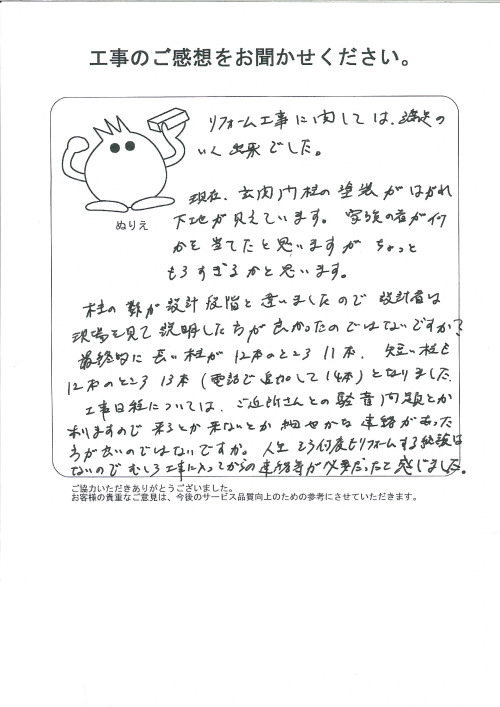 工事のご感想をお聞かせください。
リフォーム工事に関しては、満足の
いく出来でした。
現在、玄関内柱の塗装がはがれ
下地が見えています。家族の者が何
かを当てたと思いますがちょっと
もろすぎるかと思います。
ぬりえ
柱の数が設計段階と違いましたので設計者は
現場を見て説明した方が良かったのではないですか?
最終的に長い柱が12本のところ11本、短い柱も
12本のところ13本(電話で追加して14本)となりました。
工事日程については、ご近所さんとの騒音問題とか
有りますので来るとか来ないとか細やかな連絡があった
方が良いのではないですか。人生そう何度もリフォームする経験は
ないのでむしろ工事に入ってからの連絡等が必要だったと感じました。
ご協力いただきありがとうございました。
お客様の貴重なご意見は、今後のサービス品質向上のための参考にさせていただきます。